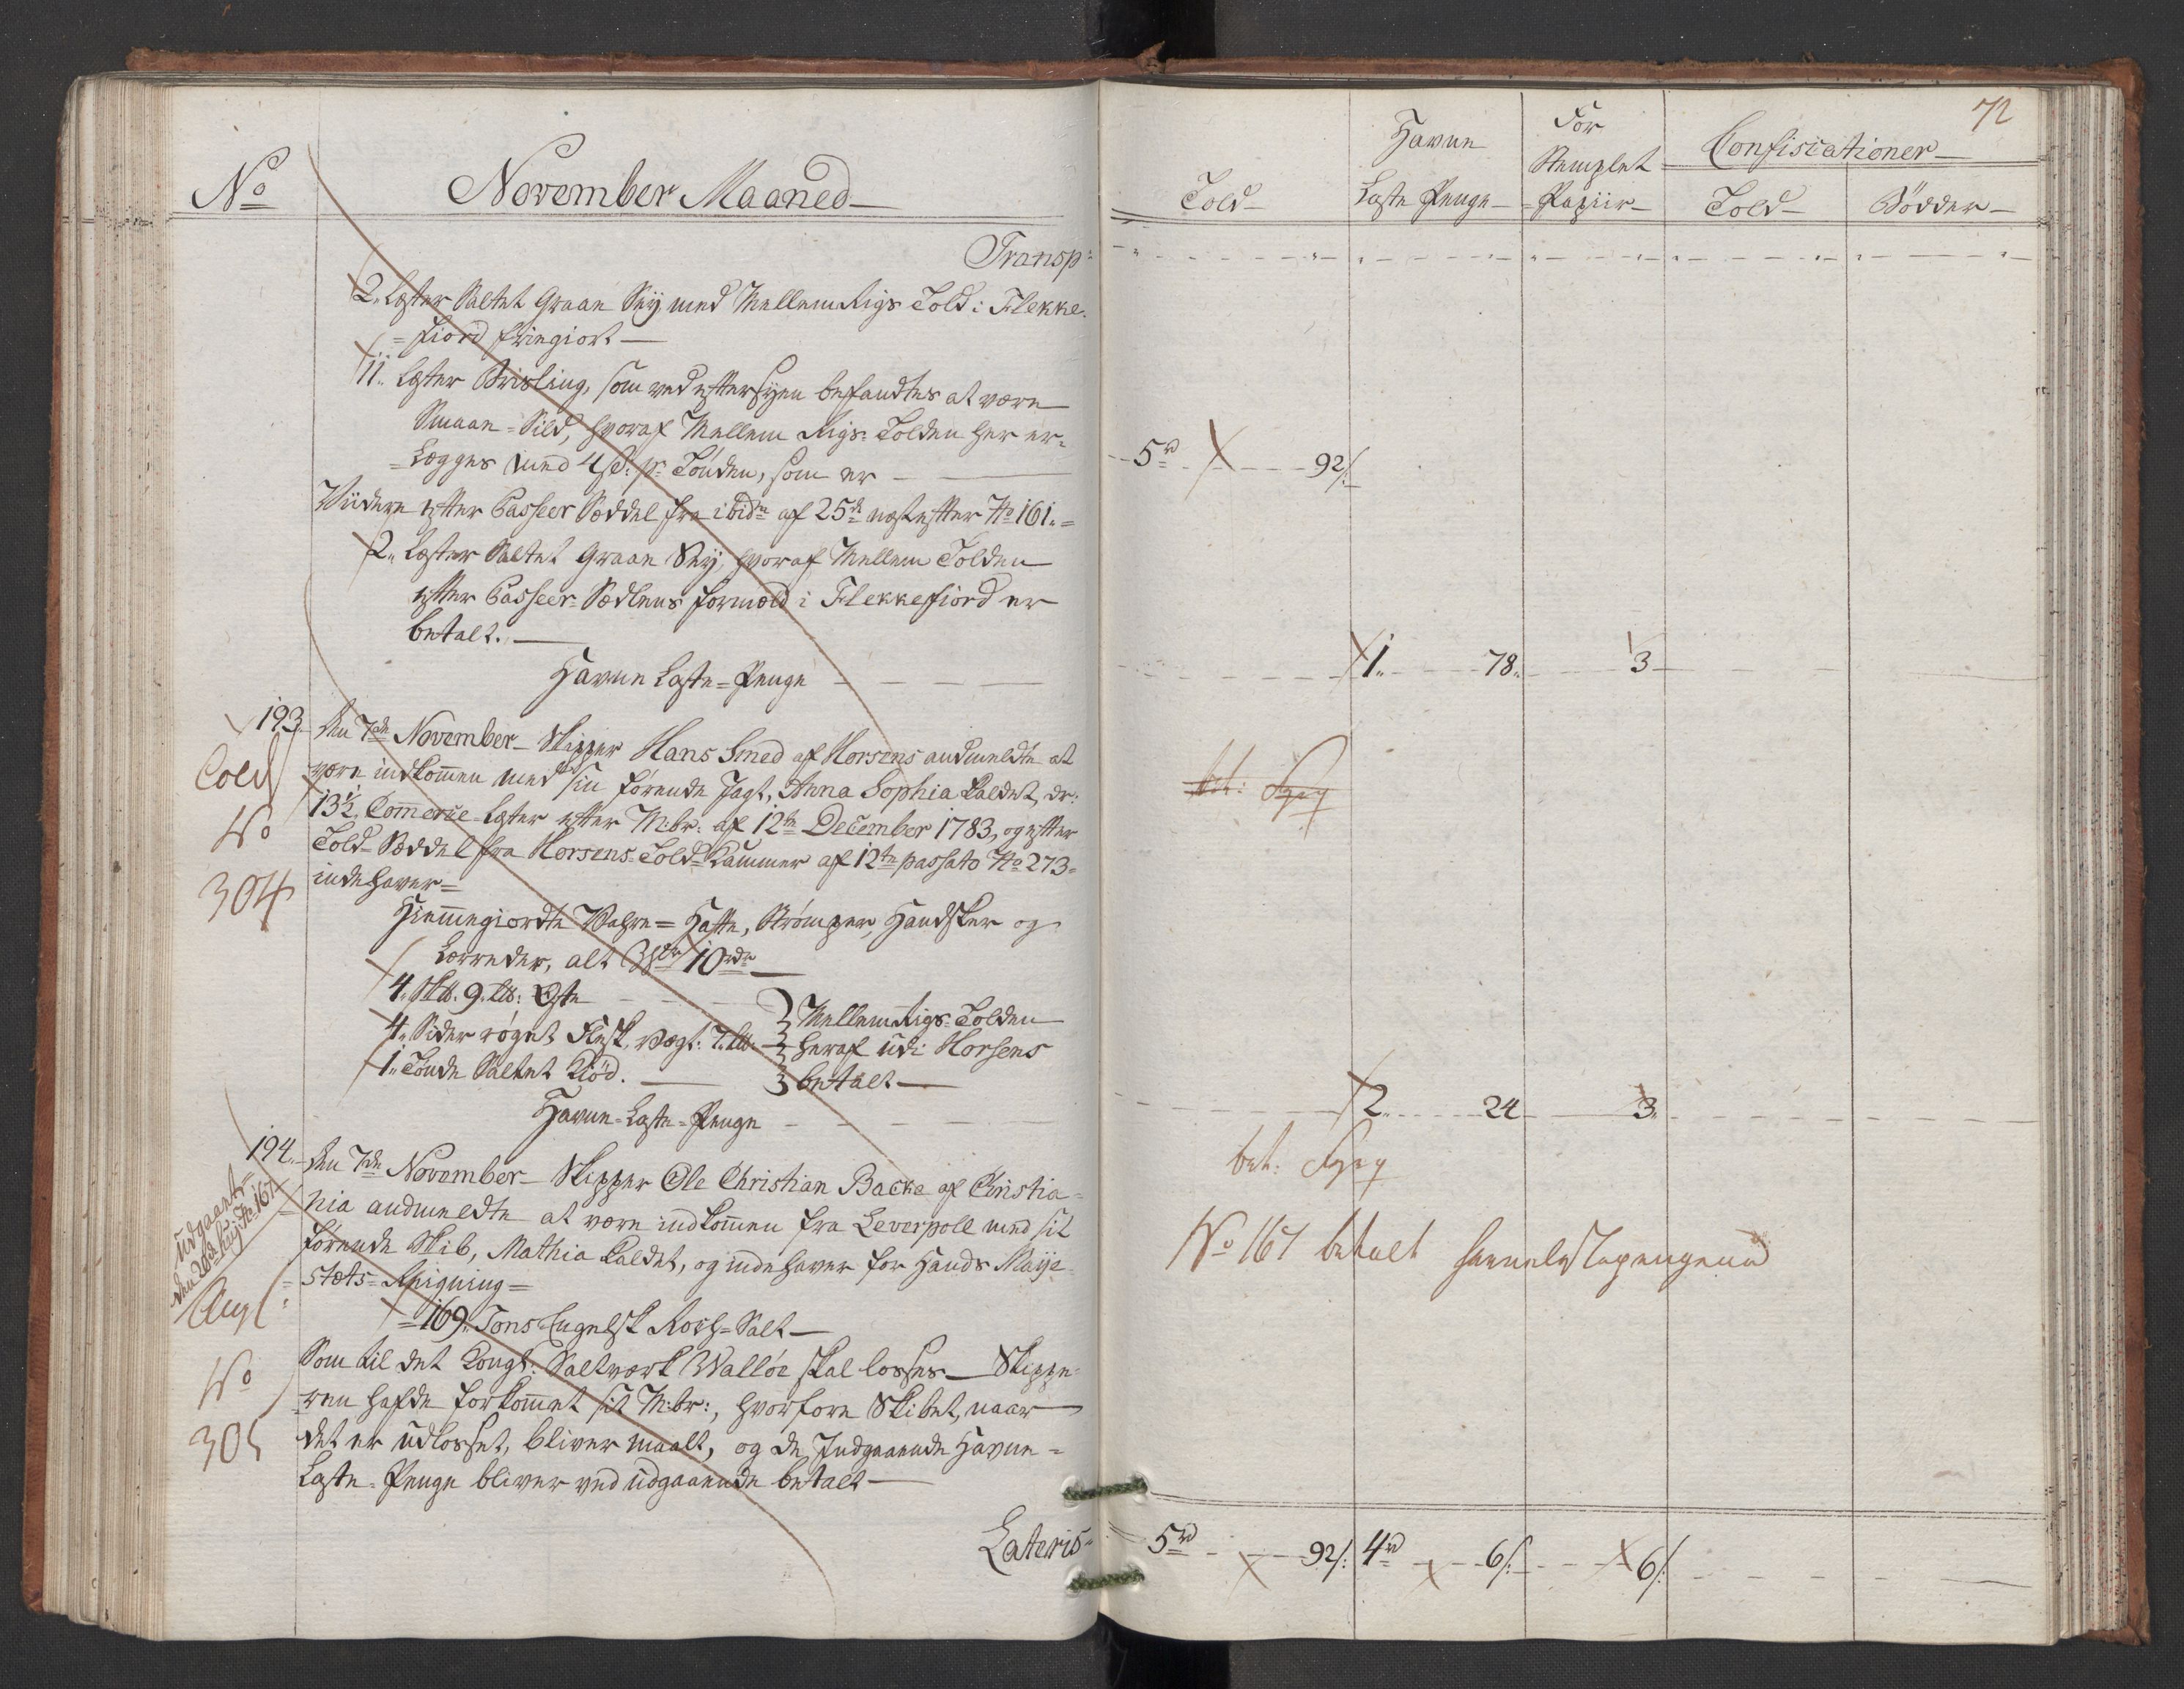 No
November Maaned
Transp:
2. Læster Saltet Graae Sey, med Mellem Rigs Told i Flekke-
=fiord friegiort
11. Læster Brisling, som ved Eftersyen befandtes at være
Smaae=Sild, hvoraf Mellem Rigs Tolden her er=
=lægges med 4 s: pr Tønden, som er
Viidere efter Passeer Seddel fra ibidm af 25de næstefter No 161.=
2. Læster Saltet Graae Sey, hvoraf Mellem Tolden
efter Passeer=Sedlens formæld i Flekkefiord er
betalt.
Havne Læste=Penge
193.
Told
No
304
Den 7de November Skipper Hans Smed af Horsens anmeldte at
være indkommen med sin førende Jagt, Anna Sophia kaldet, dr:
13½ Commerce Læster efter M:br: af 12te December 1783, og efter
Told=Seddel fra Horsens Told=Kammer af 12te passato No 273=
indehaver=
Hiemmegiordte Vahre= Hatte, Strømper, Handsker og
Lærreder, alt 10rdr
4. Sk℔. 9. L℔: Oste
4. Sider røget Flesk. vægt: 7. L℔
1. Tønde Saltet Kiød.
Mellem Rigs=Tolden
heraf udi Horsens
betalt
Havne=Læste=Penge
194.
Udgaaet
den 20de huj: No 167
Ang:
No
305
Den 7de November Skipper Ole Christian Backe af Christia=
nia anmeldte at være indkommen fra Leverpoll med sit
førende Skib, Mathia kaldet, og indehaver for Hands Maije=
=stæts Reigning=
=169. Tons Engelsk Roch=Salt
Som til det Kongl: Saltværk Walløe skal losses Skippe=
=ren hafde forkommet sit M:br:, hvorfore Skibet, naar
det er udlosset, bliver maalt, og de Indgaaende Havne=
Læste=Penge bliver ved udgaaende betalt
Lateris
72
Told
Havne
Læste Penge
For
Stemplet
Papiir
Confiscationer
Told
Bødder
5rd 92s:
1. 78. 3
bet:
2. 24 3.
bet:
No 167 betalt havnelæstepengene
5rd 92s: 4rd 6s: 6s: